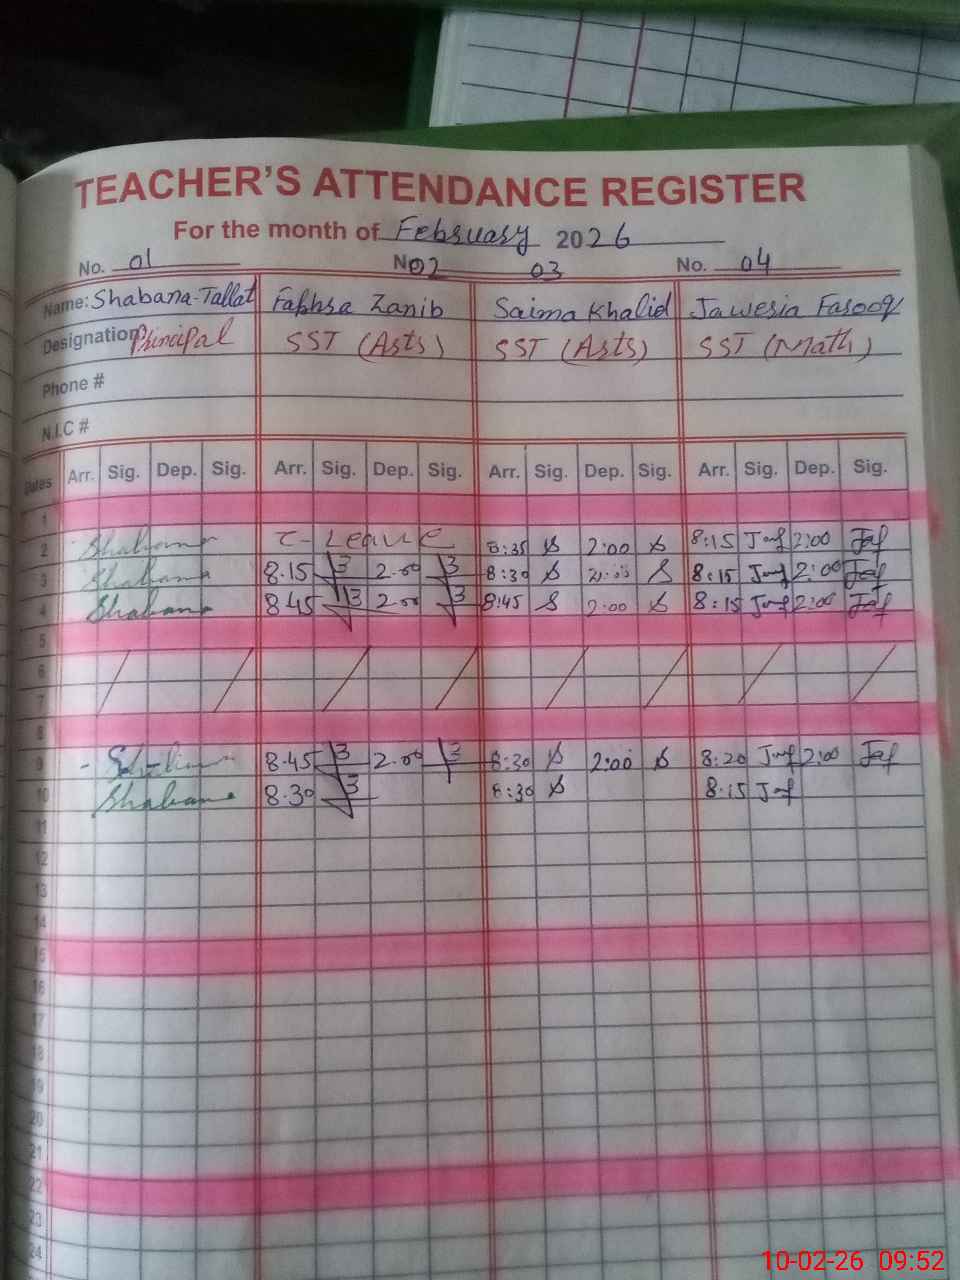 TEACHER'S ATTENDANCE REGISTER
For the month of February 2026
No. 01 No 02 03 No. 04
Name: Shabana Tallat Zanib Saima Khalid Jaweria Farooq
Designation Principal SST (Arts) SST (Arts) SST (Math)
Phone #
N.I.C #
Dates Arr. Sig. Dep. Sig. Arr. Sig. Dep. Sig. Arr. Sig. Dep. Sig. Arr. Sig. Dep. Sig.
1
2 Shabana C-Leave 8:35 2:00 8:15 2:00
3 Shabana 8.15 2.00 8:30 2:00 8:15 2:00
4 Shabana 8.45 2.00 8:45 2:00 8:15 2:00
5
6
7
8
9 8.45 2.00 8:30 2:00 8:20 2:00
10 Shabana 8.30 8:30 8:15
11
12
13
14
15
16
17
18
19
20
21
22
23
24
10-02-26 09:52